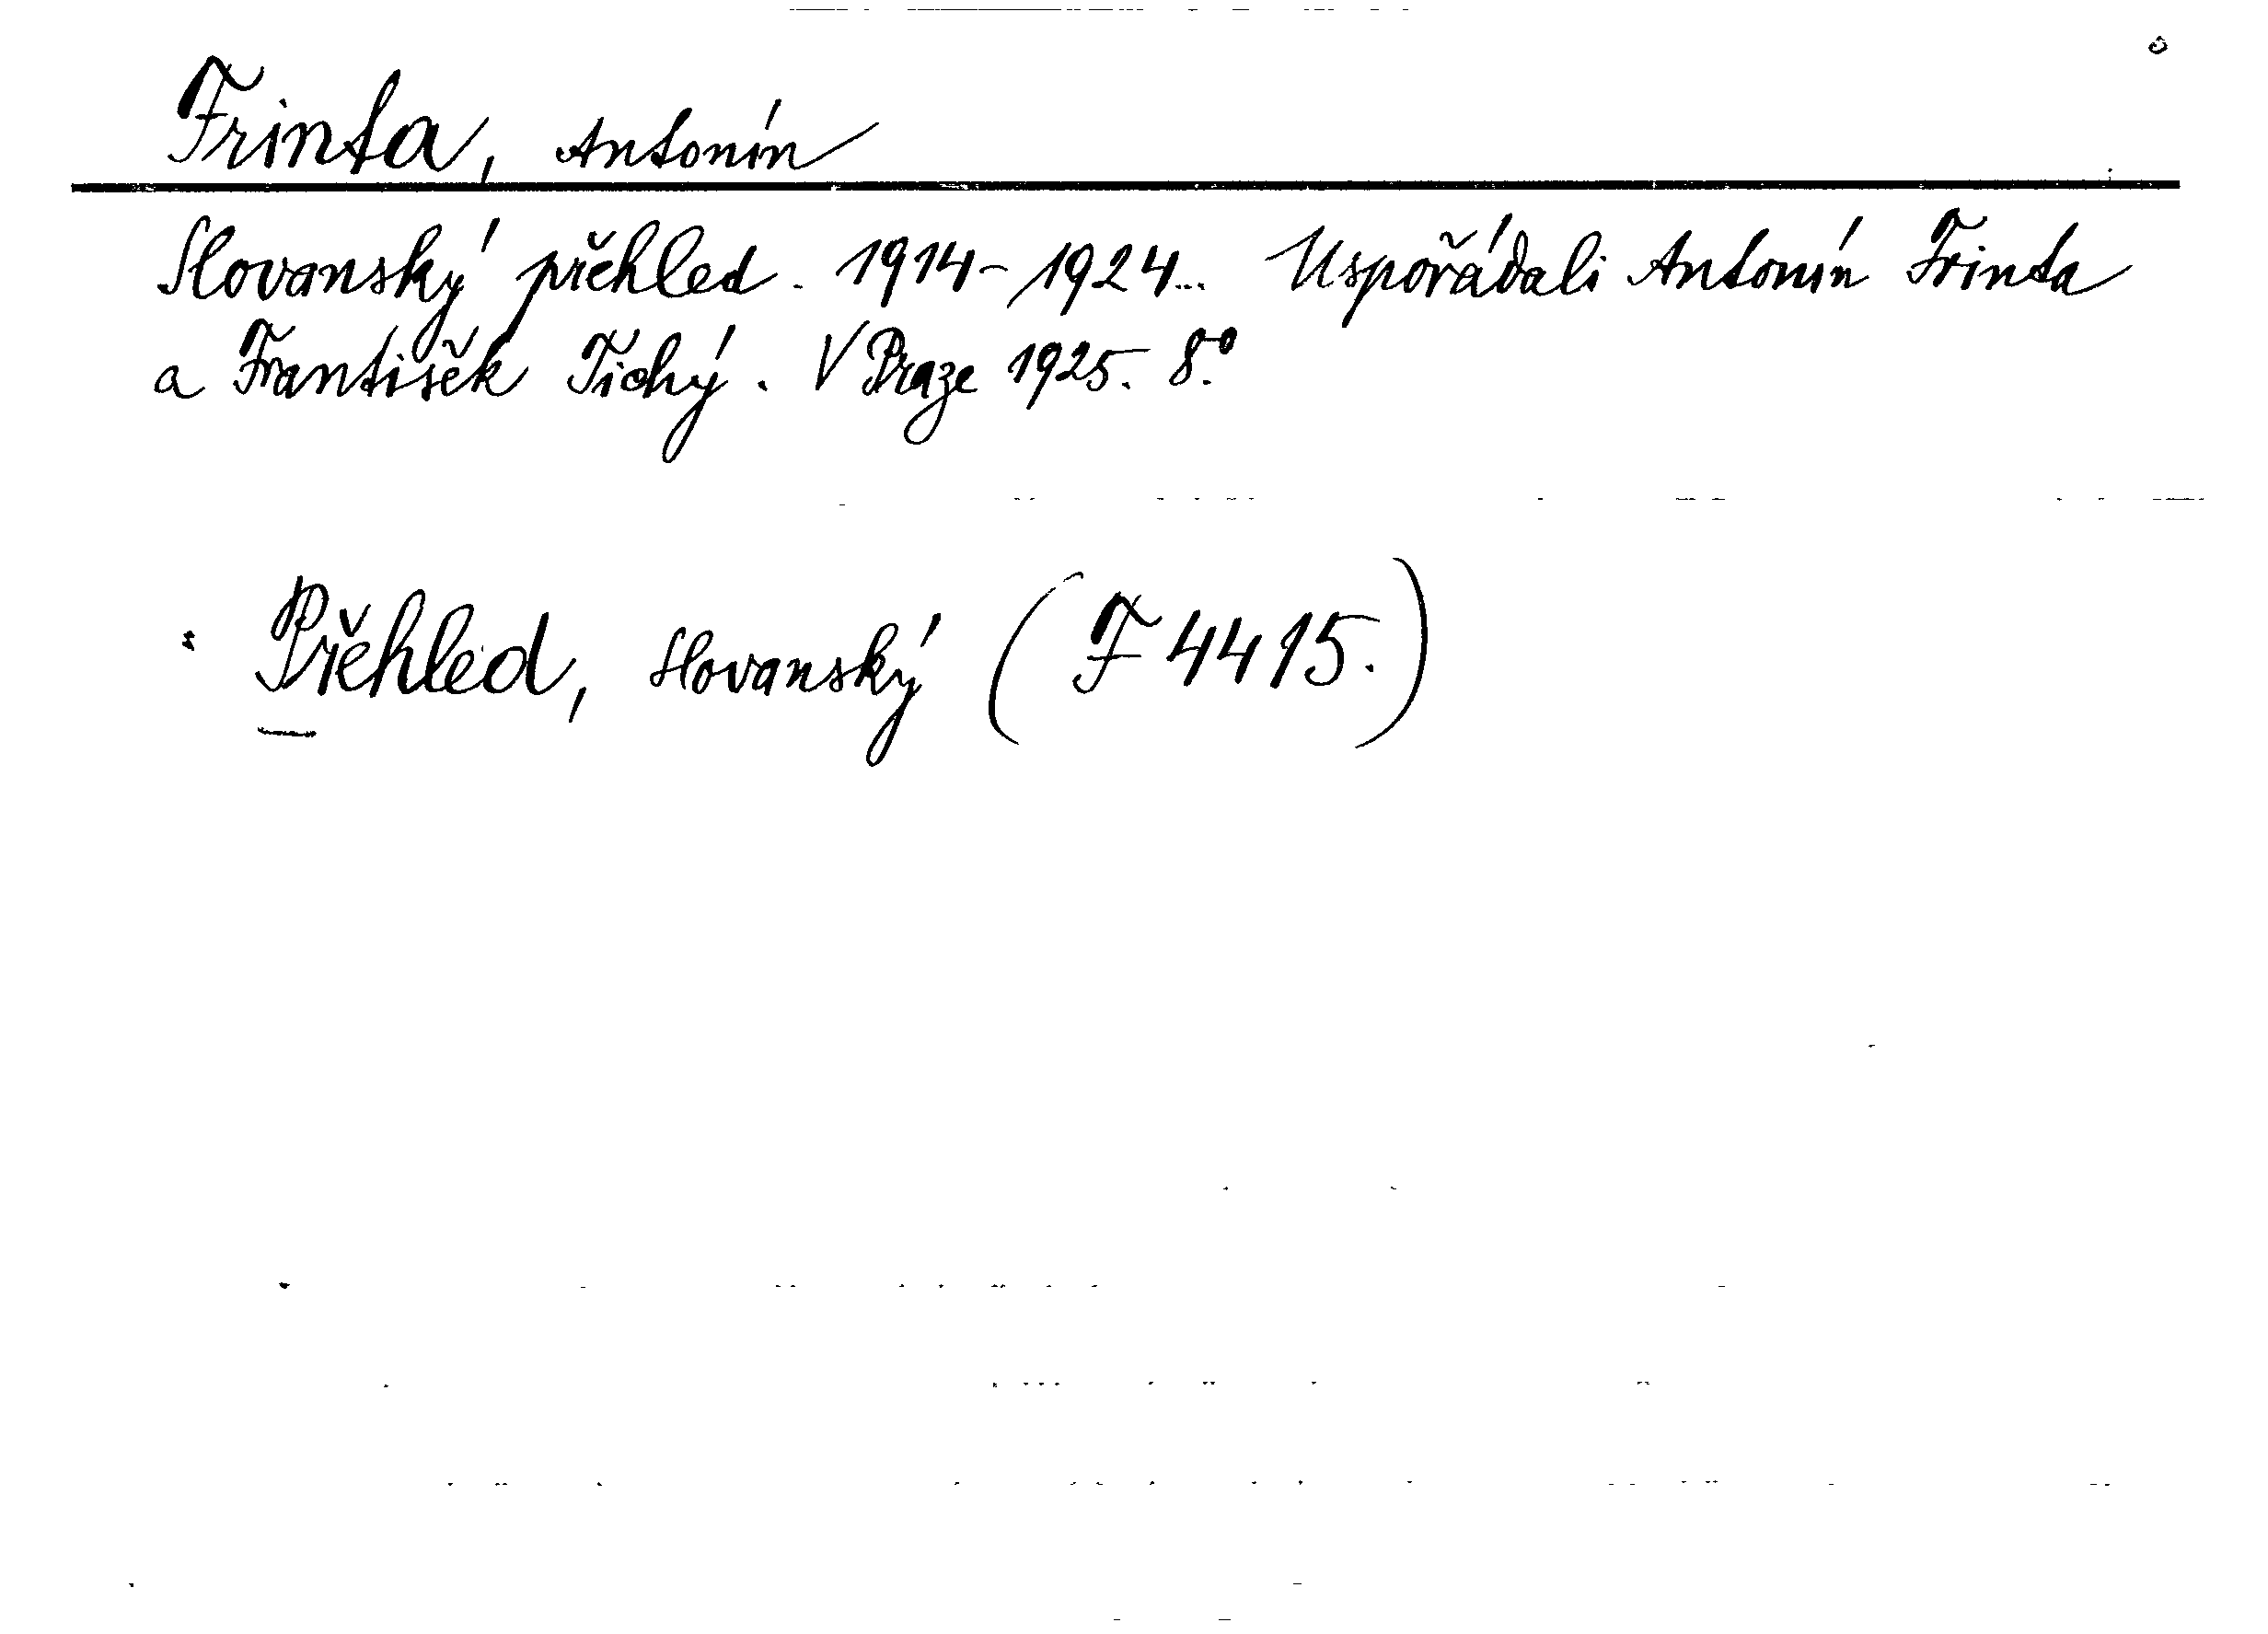 Frinta, Antonín
Slovanský přehled. 1914-1924... Uspořádali Antonín Frinta
a František Tichý. V Praze 1925. 8.°
: Přehled, slovanský (F 4415.)